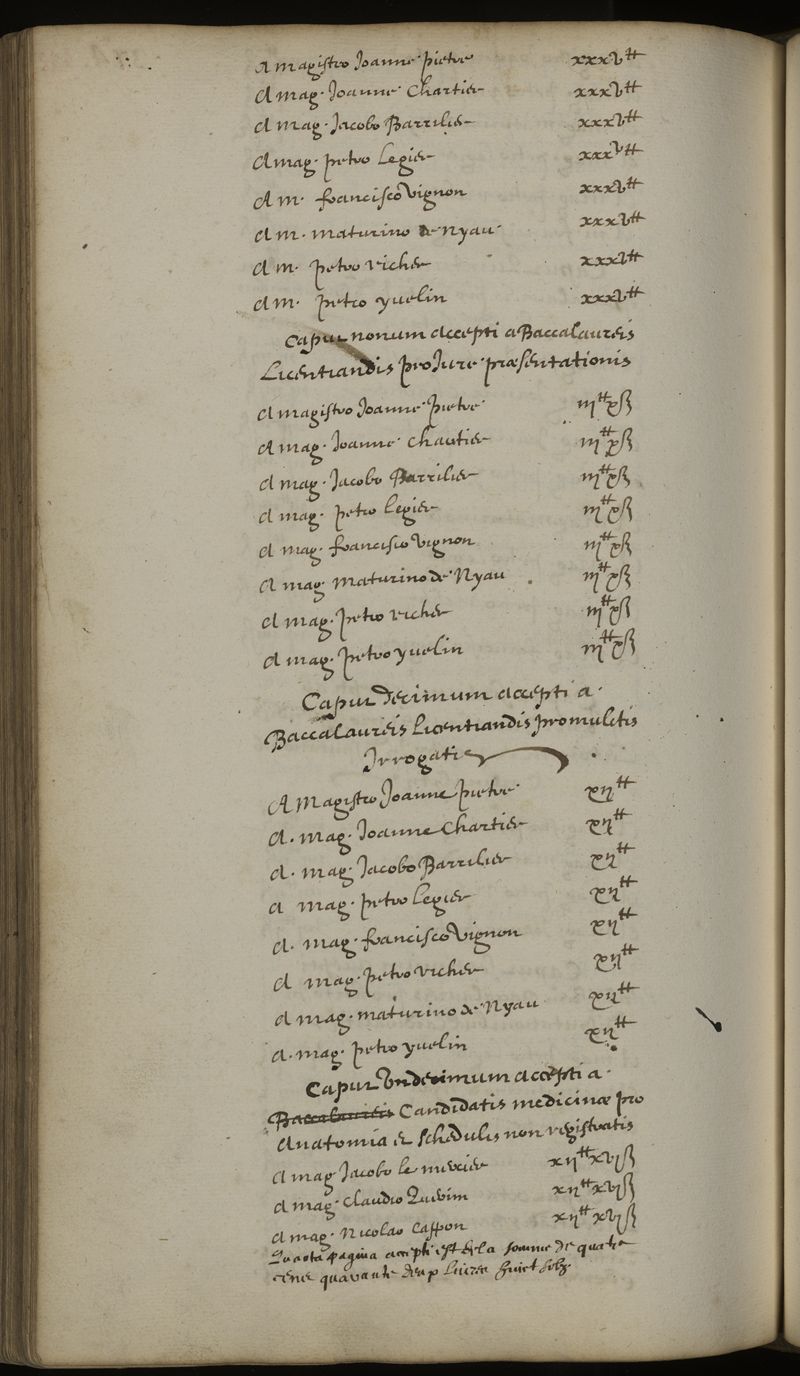 A magistro Joanne pietre xxxv₶
A mag. Joanne Chartier xxxv₶
A mag. Jacobo Barrilier xxxv₶
A mag. petro Legier xxxv₶
A m. francisco Vignon xxxv₶
A m. maturino de Nyau xxxv₶
A m. petro richer xxxv₶
A m. petro yuelin xxxv₶
Caput nonum accepti a Baccalaureis
Licentiandis pro Jure præsentationis
A magistro Joanne pietre iij₶ xß
A mag. Joanne Chartier iij₶ xß
A mag. Jacobo Barrilier iij₶ xß
A mag. petro Legier iij₶ xß
A mag. francisco Vignon iij₶ xß
A mag. maturino de Nyau iij₶ xß
A mag. petro richer iij₶ xß
A mag. petro yuelin iij₶ xß
Caput decimum accepti a
Baccalaureis Licentiandis pro mulctis
Irrogatis
A Magistro Joanne pietre xij₶
A. mag. Joanne Chartier xij₶
A. mag. Jacobo Barrilier xij₶
A mag. petro Legier xij₶
A. mag. francisco Vignon xij₶
A mag. petro richer xij₶
A mag. maturino de Nyau xij₶
A. mag. petro yuelin xij₶
Caput Undecimum accepti a
Baccalaureis Candidatis medicinæ pro
Anatomia et schedulis non registratis
A mag Jacobo le mercier xij₶ xvjß
A mag. Claudio Quivim xij₶ xvjß
A mag. Nicolao Cappon xij₶ xvjß
Quarta pagina accepti est de la somme de quatre
cens quarante deux Livres huict solz